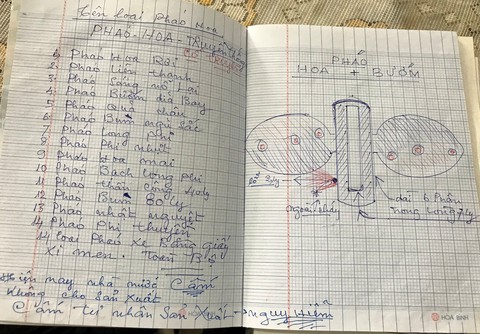 Tên loại Pháo Hoa
PHÁO-HOA-Truyền Thống
CỔ TRUYỀN
1 Pháo Hoa Rải
2 Pháo Liên thanh
3 Pháo Sáng nổ lại
4 Pháo Bướm đĩa Bay
5 Pháo Quả
6 Pháo Bướm ngũ sắc
7 Pháo Long phi
8 Pháo Phi nhất
9 Pháo Hoa mai
10 Pháo Bạch Long phi
11 Pháo thần công 40 ly
12 Pháo 80 ly
13 Pháo nhật nguyệt
14 Pháo Phi thuyền
14 loại Pháo xe bằng giấy
Xi măn. Toàn Bộ
Hiện nay nhà nước Cấm
Không cho sản xuất
Cấm tư nhân Sản xuất → nguy Hiểm
PHÁO
HOA + BƯỚM
Lỗ 2ly
ngòi cháy
dài 6 Phân
nong Lòng 7ly
HÒA BÌNH
HÒA BÌNH